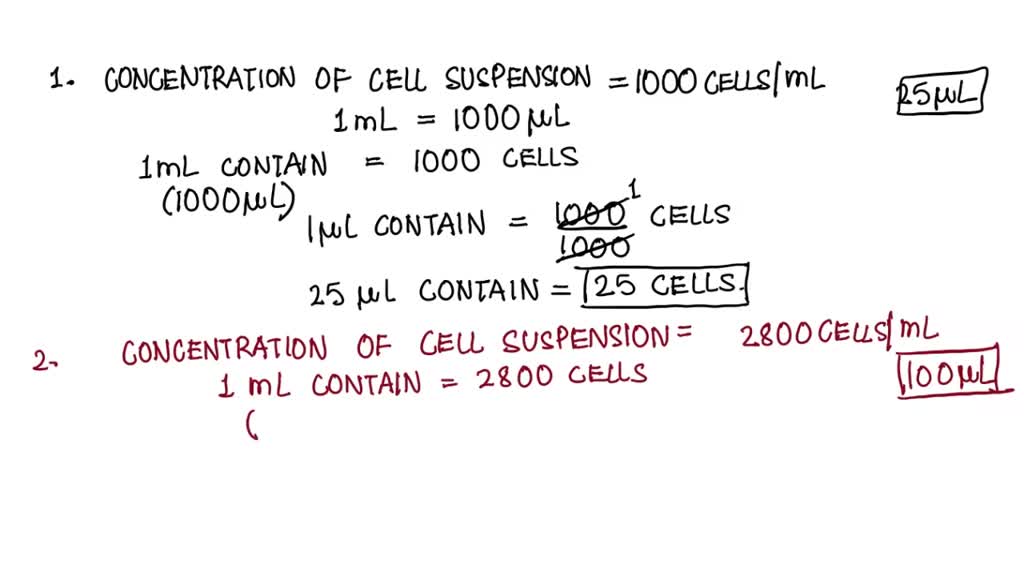 1. CONCENTRATION OF CELL SUSPENSION = 1000 CELLS/mL 25 μL
1 mL = 1000 μL
1mL CONTAIN = 1000 CELLS
(1000 μL)
1 μL CONTAIN = 1000/1000 1 CELLS
25 μL CONTAIN = 25 CELLS.
2. CONCENTRATION OF CELL SUSPENSION = 2800 CELLS/mL
1 mL CONTAIN = 2800 CELLS 100 μL
(